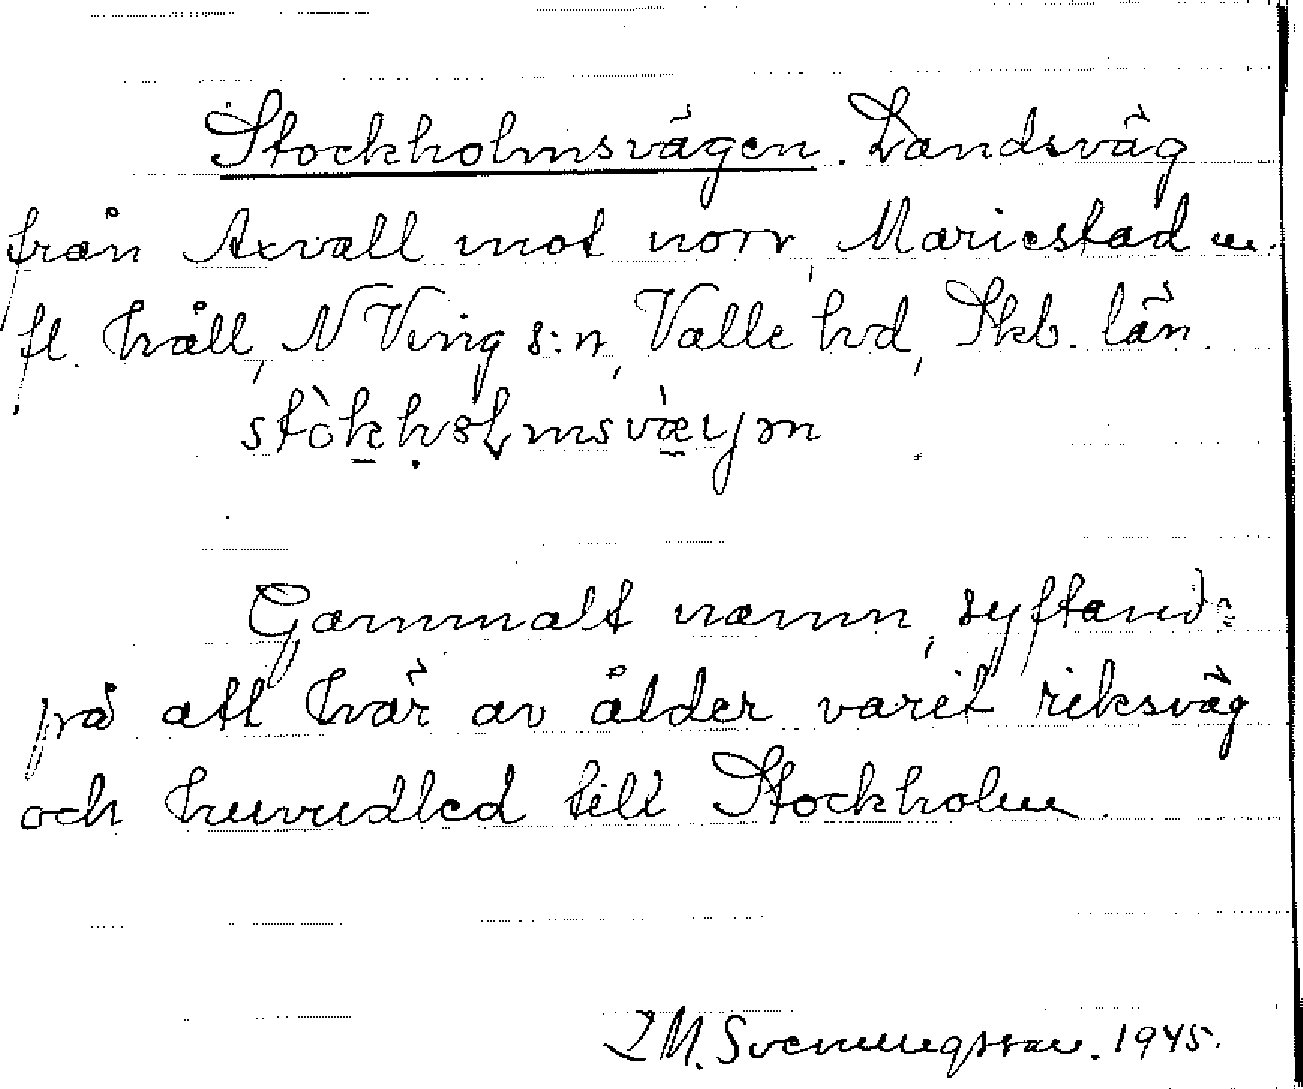 Stockholmsvägen. Landsväg
från Axvall mot norr, Mariestad m.
fl. håll, N Ving s:n, Valle hd, Skb. län.
Gammalt namn, syftande
på att här av ålder varit riksväg
och huvudled till Stockholm.
Z M. Svenningsson. 1945.